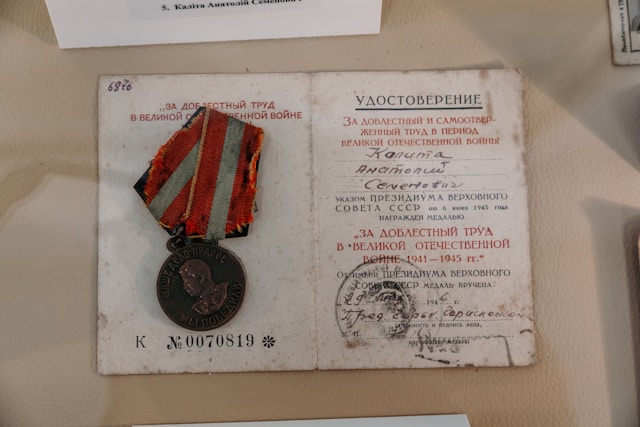 5. Каліта Анатолій Семенович
6876
„ЗА ДОБЛЕСТНЫЙ ТРУД
В ВЕЛИКОЙ ОТЕЧЕСТВЕННОЙ ВОЙНЕ
НАШЕ ДЕЛО ПРАВОЕ
МЫ ПОБЕДИЛИ
К №0070819 ✻
УДОСТОВЕРЕНИЕ
ЗА ДОБЛЕСТНЫЙ И САМООТВЕР-
ЖЕННЫЙ ТРУД В ПЕРИОД
ВЕЛИКОЙ ОТЕЧЕСТВЕННОЙ ВОЙНЫ
Калита
Анатолий
Семенович
УКАЗОМ ПРЕЗИДИУМА ВЕРХОВНОГО
СОВЕТА СССР от 6 июня 1945 года
НАГРАЖДЕН МЕДАЛЬЮ
„ЗА ДОБЛЕСТНЫЙ ТРУД
В ВЕЛИКОЙ ОТЕЧЕСТВЕННОЙ
ВОЙНЕ 1941—1945 гг.“
От имени ПРЕЗИДИУМА ВЕРХОВНОГО
СОВЕТА СССР МЕДАЛЬ ВРУЧЕНА:
1946 г.
Пред
М. П. должность и подпись лица,
вручившего медаль